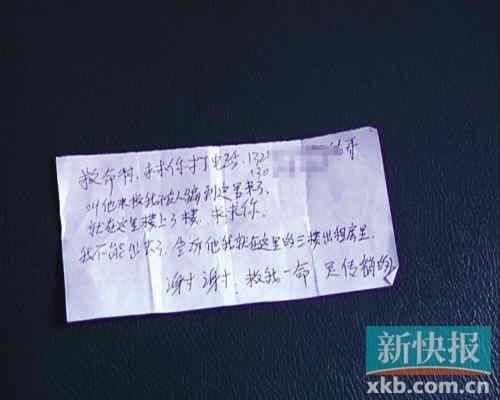 救命啊,求求你打电话.132
130
叫他来救我我被人骗到这里来了,
就在这里楼上3楼.求求你.
我不能出来了.告诉他我就在这里的三楼出租房里.
谢谢谢谢.救我一命 是传销的
新快报
xkb.com.cn